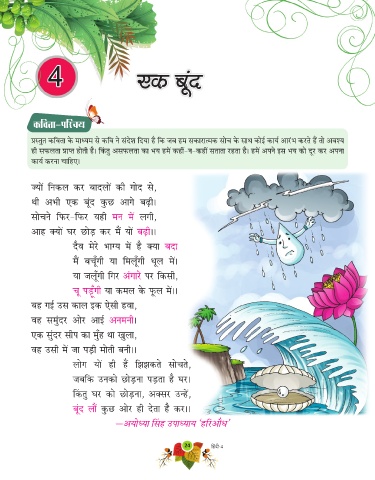 4
एक बूंद
कविता-परिचय
प्रस्तुत कविता के माध्यम से कवि ने संदेश दिया है कि जब हम सकारात्मक सोच के साथ कोई कार्य आरंभ करते हैं तो अवश्य
ही सफलता प्राप्त होती है। किंतु असफलता का भय हमें कहीं-न-कहीं सताता रहता है। हमें अपने इस भय को दूर कर अपना
कार्य करना चाहिए।
ज्यों निकल कर बादलों की गोद से,
थी अभी एक बूंद कुछ आगे बढ़ी।
सोचने फिर-फिर यही मन में लगी,
आह क्यों घर छोड़ कर मैं यों बढ़ी॥
दैव मेरे भाग्य में है क्या बदा
मैं बचूँगी या मिलूँगी धूल में।
या जलूँगी गिर अंगारे पर किसी,
चू पड़ूँगी या कमल के फूल में॥
बह गई उस काल इक ऐसी हवा,
वह समुंदर ओर आई अनमनी।
एक सुंदर सीप का मुँह था खुला,
वह उसी में जा पड़ी मोती बनी॥
लोग यों ही हैं झिझकते सोचते,
जबकि उनको छोड़ना पड़ता है घर।
किंतु घर को छोड़ना, अक्सर उन्हें,
बूंद लौं कुछ ओर ही देता है कर॥
—अयोध्या सिंह उपाध्याय 'हरिऔध'
24
हिंदी-4